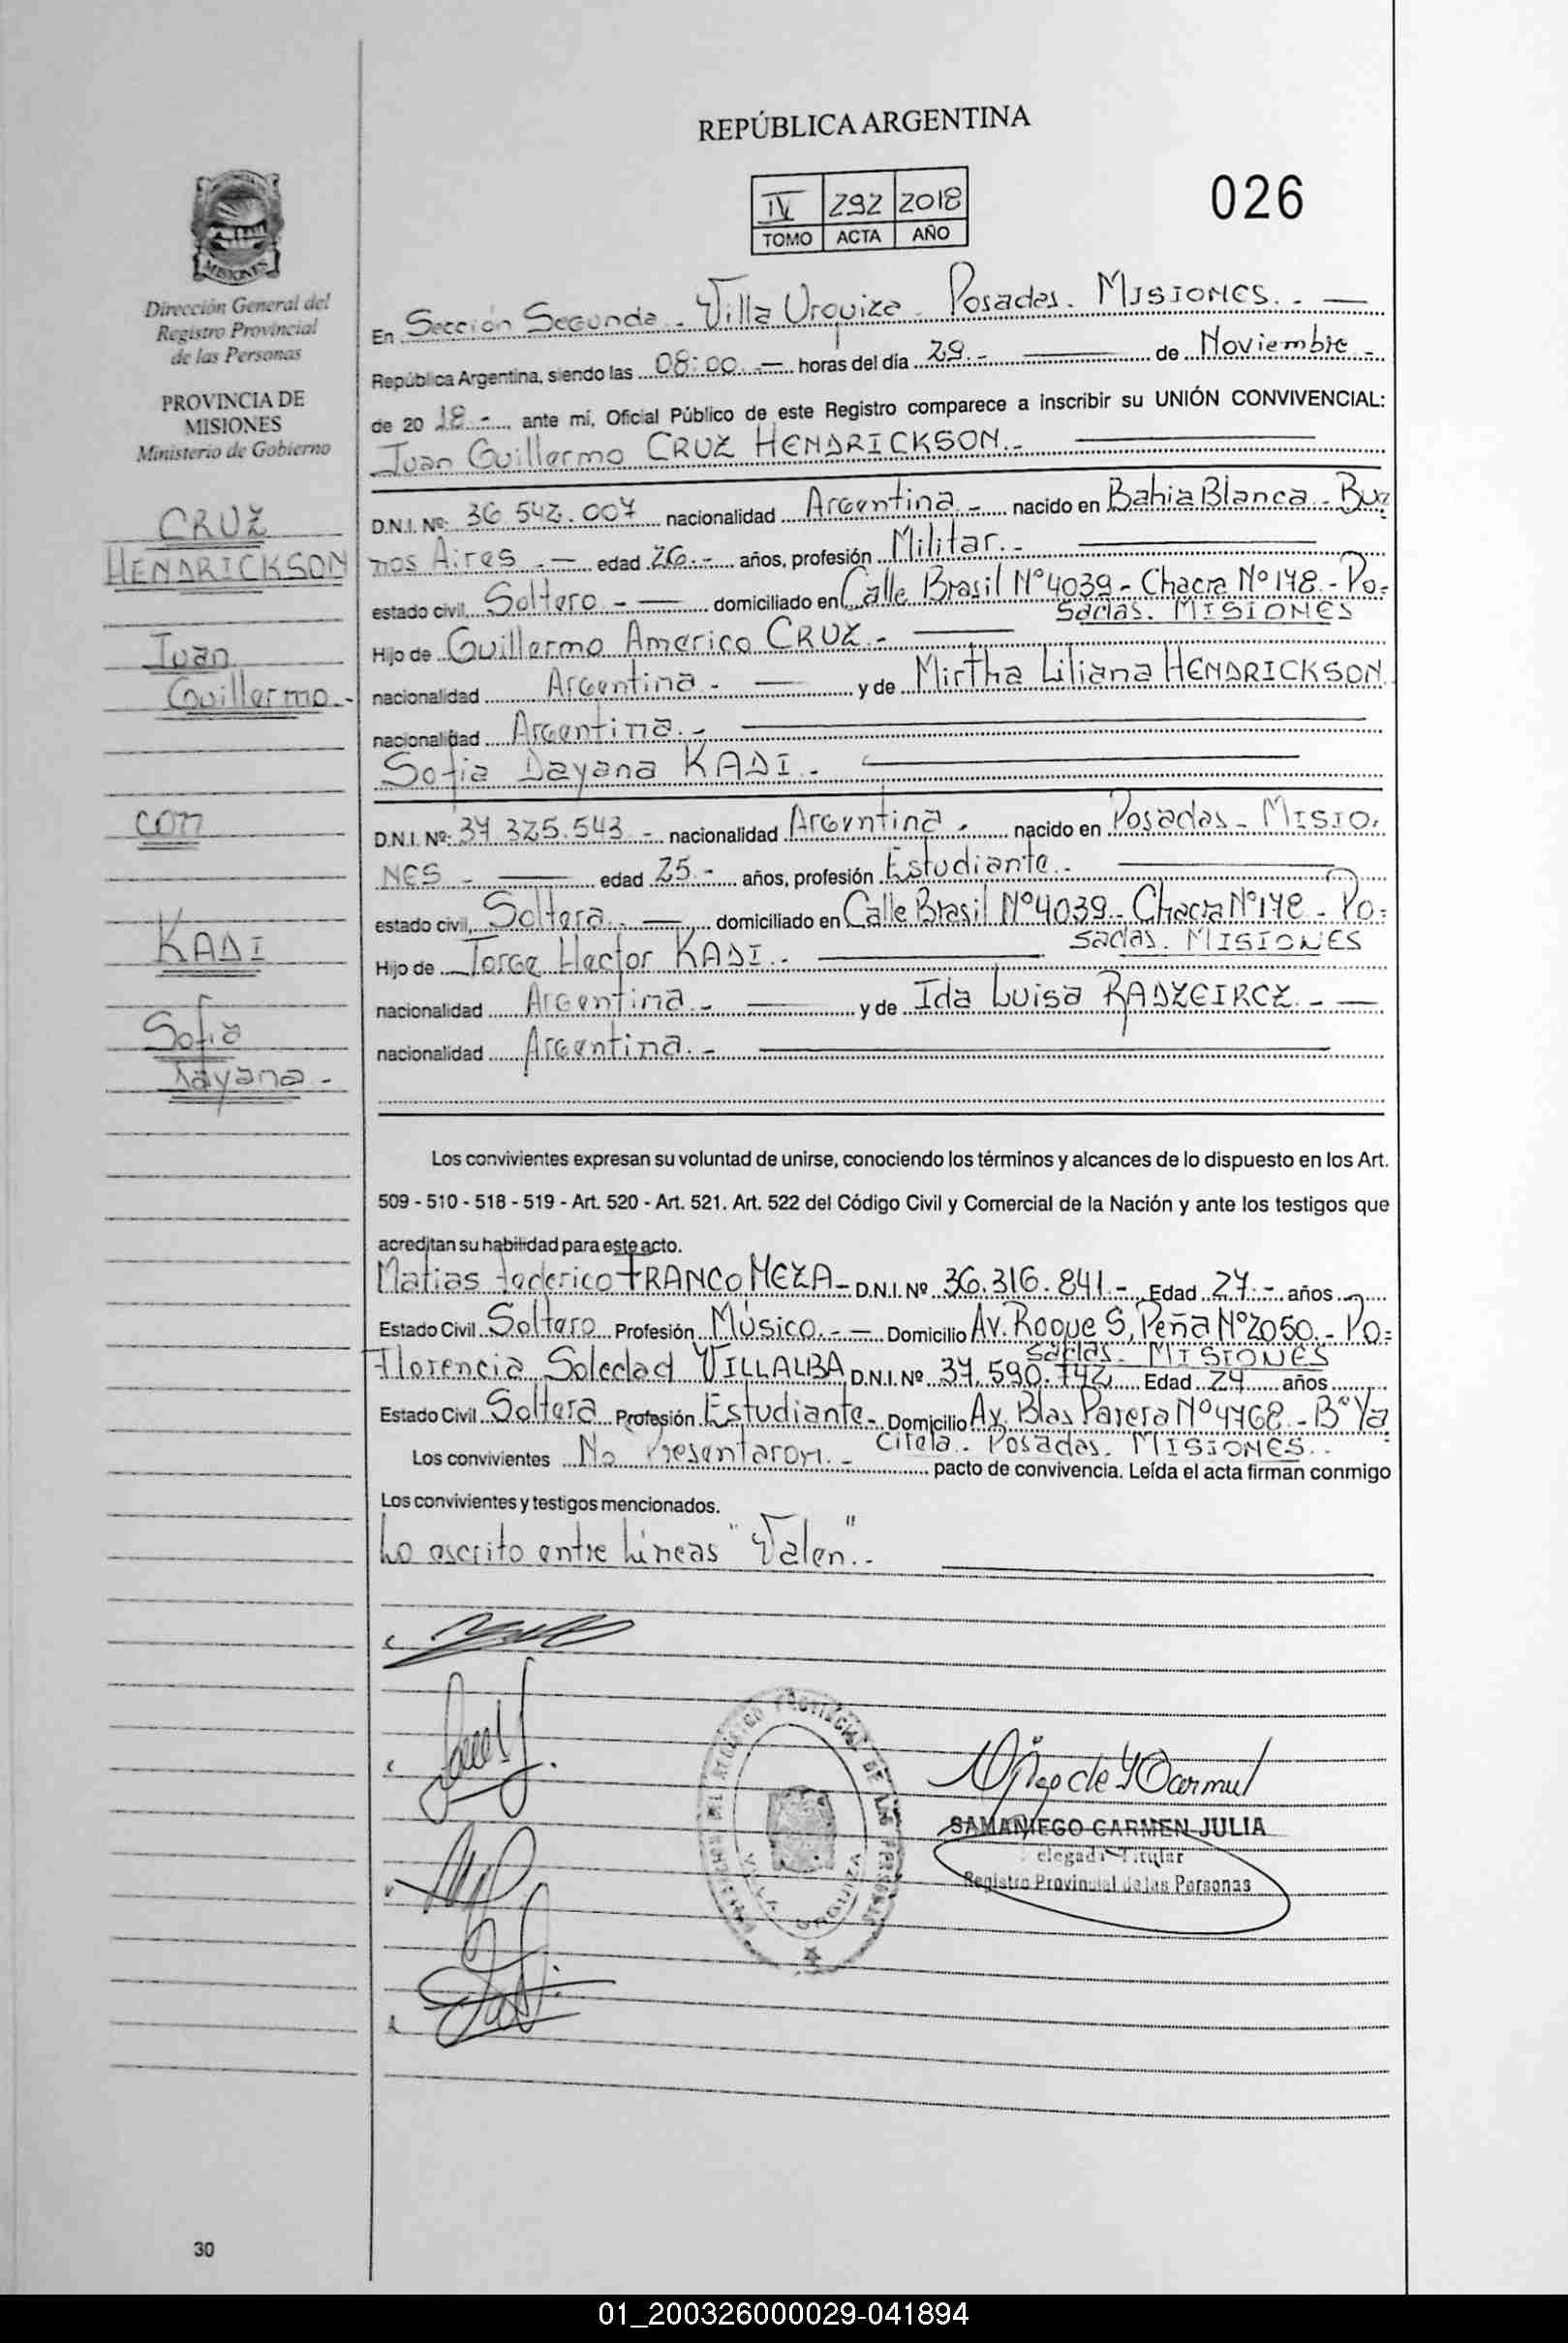 REPÚBLICA ARGENTINA
IV 292 2018
TOMO ACTA AÑO
026
MISIONES
Dirección General del
Registro Provincial
de las Personas
PROVINCIA DE
MISIONES
Ministerio de Gobierno
CRUZ
HENDRICKSON
Juan
Guillermo.-
con
KADI
Sofia
Dayana.-
En Sección Segunda.- Villa Urquiza.- Posadas. MISIONES.-
República Argentina, siendo las 08:00.- horas del día 29.- de Noviembre.-
de 2018.- ante mí, Oficial Público de este Registro comparece a inscribir su UNIÓN CONVIVENCIAL:
Juan Guillermo CRUZ HENDRICKSON.-
D.N.I. Nº: 36 542.007 nacionalidad Argentina.- nacido en Bahia Blanca.- Bue
nos Aires.- edad 26.- años, profesión Militar.-
estado civil, Soltero.- domiciliado en Calle Brasil Nº 4039.- Chacra Nº 148.- Po=
sadas. MISIONES
Hijo de Guillermo Americo CRUZ.-
nacionalidad Argentina.- y de Mirtha Liliana HENDRICKSON.
nacionalidad Argentina.-
Sofia Dayana KADI.-
D.N.I. Nº: 37 325.543.- nacionalidad Argentina.- nacido en Posadas.- MISIO=
NES.- edad 25.- años, profesión Estudiante.-
estado civil, Soltera.- domiciliado en Calle Brasil Nº 4039.- Chacra Nº 148.- Po=
sadas. MISIONES
Hijo de Jorge Hector KADI.-
nacionalidad Argentina.- y de Ida Luisa RADZEIRCZ.-
nacionalidad Argentina.-
Los convivientes expresan su voluntad de unirse, conociendo los términos y alcances de lo dispuesto en los Art.
509 - 510 - 518 - 519 - Art. 520 - Art. 521. Art. 522 del Código Civil y Comercial de la Nación y ante los testigos que
acreditan su habilidad para este acto.
Matias Federico FRANCO MEZA.- D.N.I. Nº 36.316.841.- Edad 27.- años
Estado Civil Soltero Profesión Músico.- Domicilio Av. Roque S. Peña Nº 2050.- Po=
sadas. MISIONES
Florencia Soledad VILLALBA D.N.I. Nº 37.590.742 Edad 24 años
Estado Civil Soltera Profesión Estudiante.- Domicilio Av. Blas Parera Nº 4768.- Bº Ya
citela. Posadas. MISIONES.-
Los convivientes No Presentaron.- pacto de convivencia. Leída el acta firman conmigo
Los convivientes y testigos mencionados.
Lo escrito entre lineas "Valen".-
REGISTRO PROVINCIAL DE LAS PERSONAS
VILLA URQUIZA
SAMANIEGO CARMEN JULIA
elegada Titular
Registro Provincial de las Personas
30
01_200326000029-041894